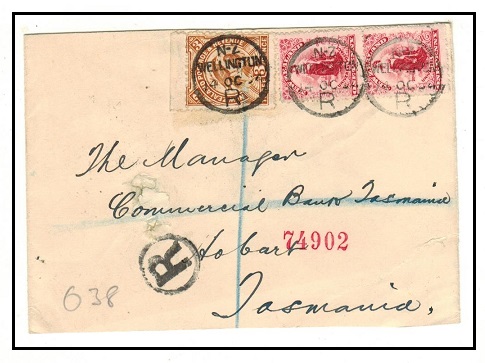 N-Z
WELLINGTON
OC
R
N-Z
WELLINGTON
OC
R
WELLINGTON
OC
R
The Manager
Commercial Bank Tasmania
Hobart
74902
R
Tasmania.
638